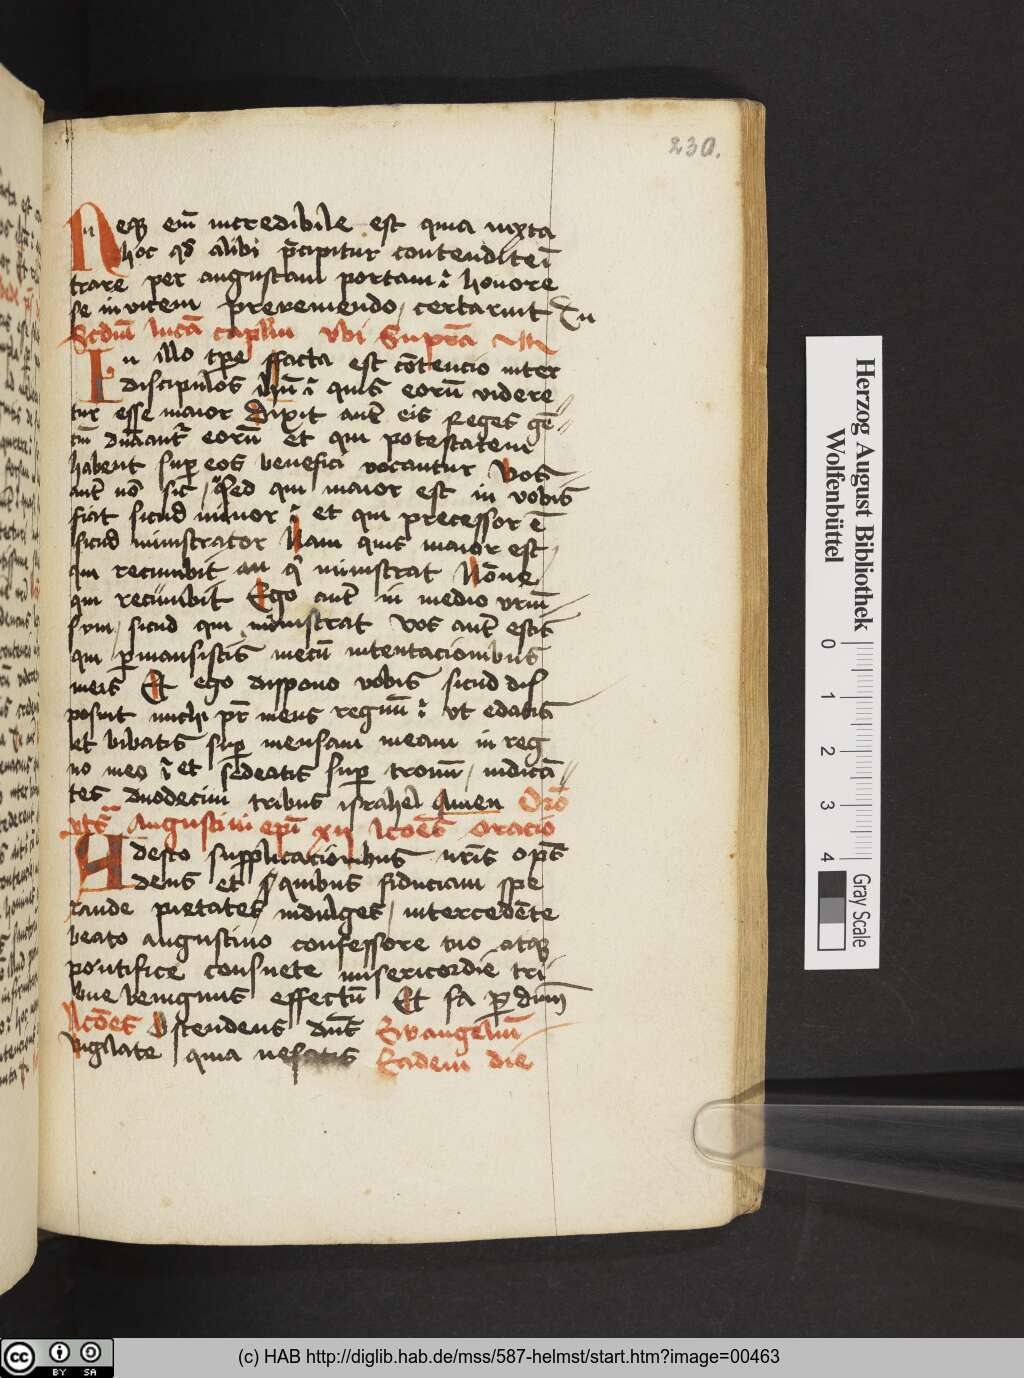 230.
Neq; em̄ incredibile est quia iuxta
hoc qd̄ alibi p̄cipitur contendite ī
trare per angustam portam ⁊ honore
se inuicem preueniendo, certarunt Ew
Scdm̄ lucā caplm̄ vbi Supra
In illo tp̄e ffacta est cōtencio inter
discipulos ihū ⁊ quis eorū videre
tur esse maior Dixit autē eis Reges gē
ciū dn̄ant᷑ eorū Et qui potestatem
habent sup eos benefici vocantur Vos
autē nō sic, Sed qui maior est in vobis
fiat sicud minor ⁊ et qui precessor ē
sicud ministrator Nam quis maior est,
qui recumbit an q̄ ministrat Nōne
qui recūmbit Ego autē in medio vrm̄
sum, sicud qui ministrat Vos autē estis
qui ꝑmansistis mecū in tentacionibus
meis Et ego dispono vobis sicud dis
posuit michi pr̄ meus regnū ⁊ vt edatis
et bibatis sup mensam meam in reg
no meo ⁊ et sedeatis sup tronū, iudicā
tes duodecim tribus israhel Amen Orō
Augustini epī xij lcōēs Oracio
Adesto supplicacionibus nr̄is opſ
deus et quibus fiduciam spe
rande pietates indulges, intercedēte
beato augustino confessore tuo atq;
pontifice consuete misericordie tri
bue benignus effectū Et fa ꝑ dnm̄
lcōēs Ostendens dn̄s Ewangeliū
Vigilate quia nescitis Eadem die
Herzog August Bibliothek
Wolfenbüttel
0 1 2 3 4
Gray Scale
cc BY SA
(c) HAB http://diglib.hab.de/mss/587-helmst/start.htm?image=00463